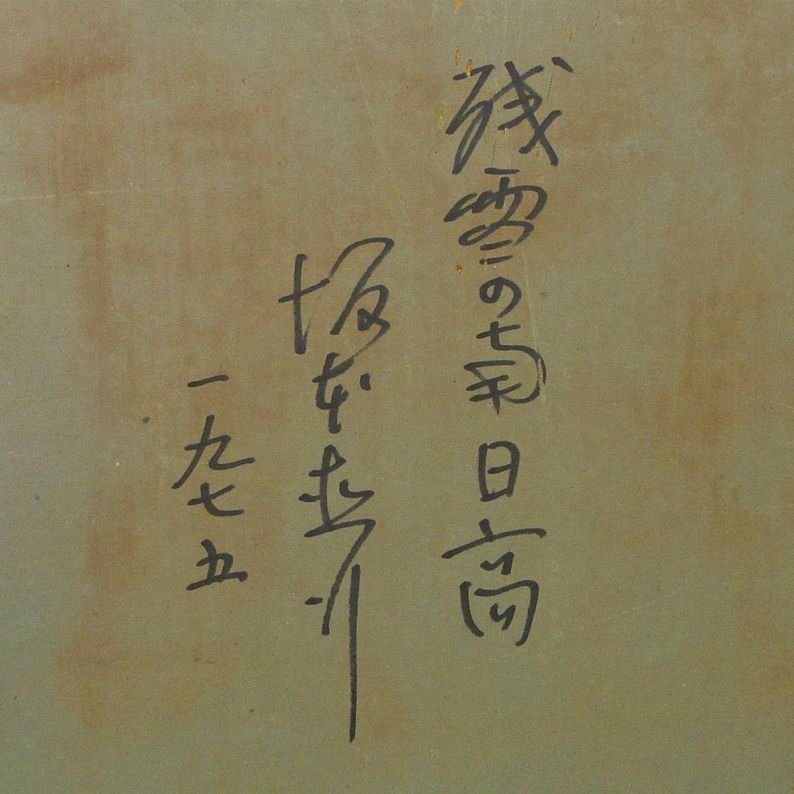 残雪の南日高
坂本直行
一九七五